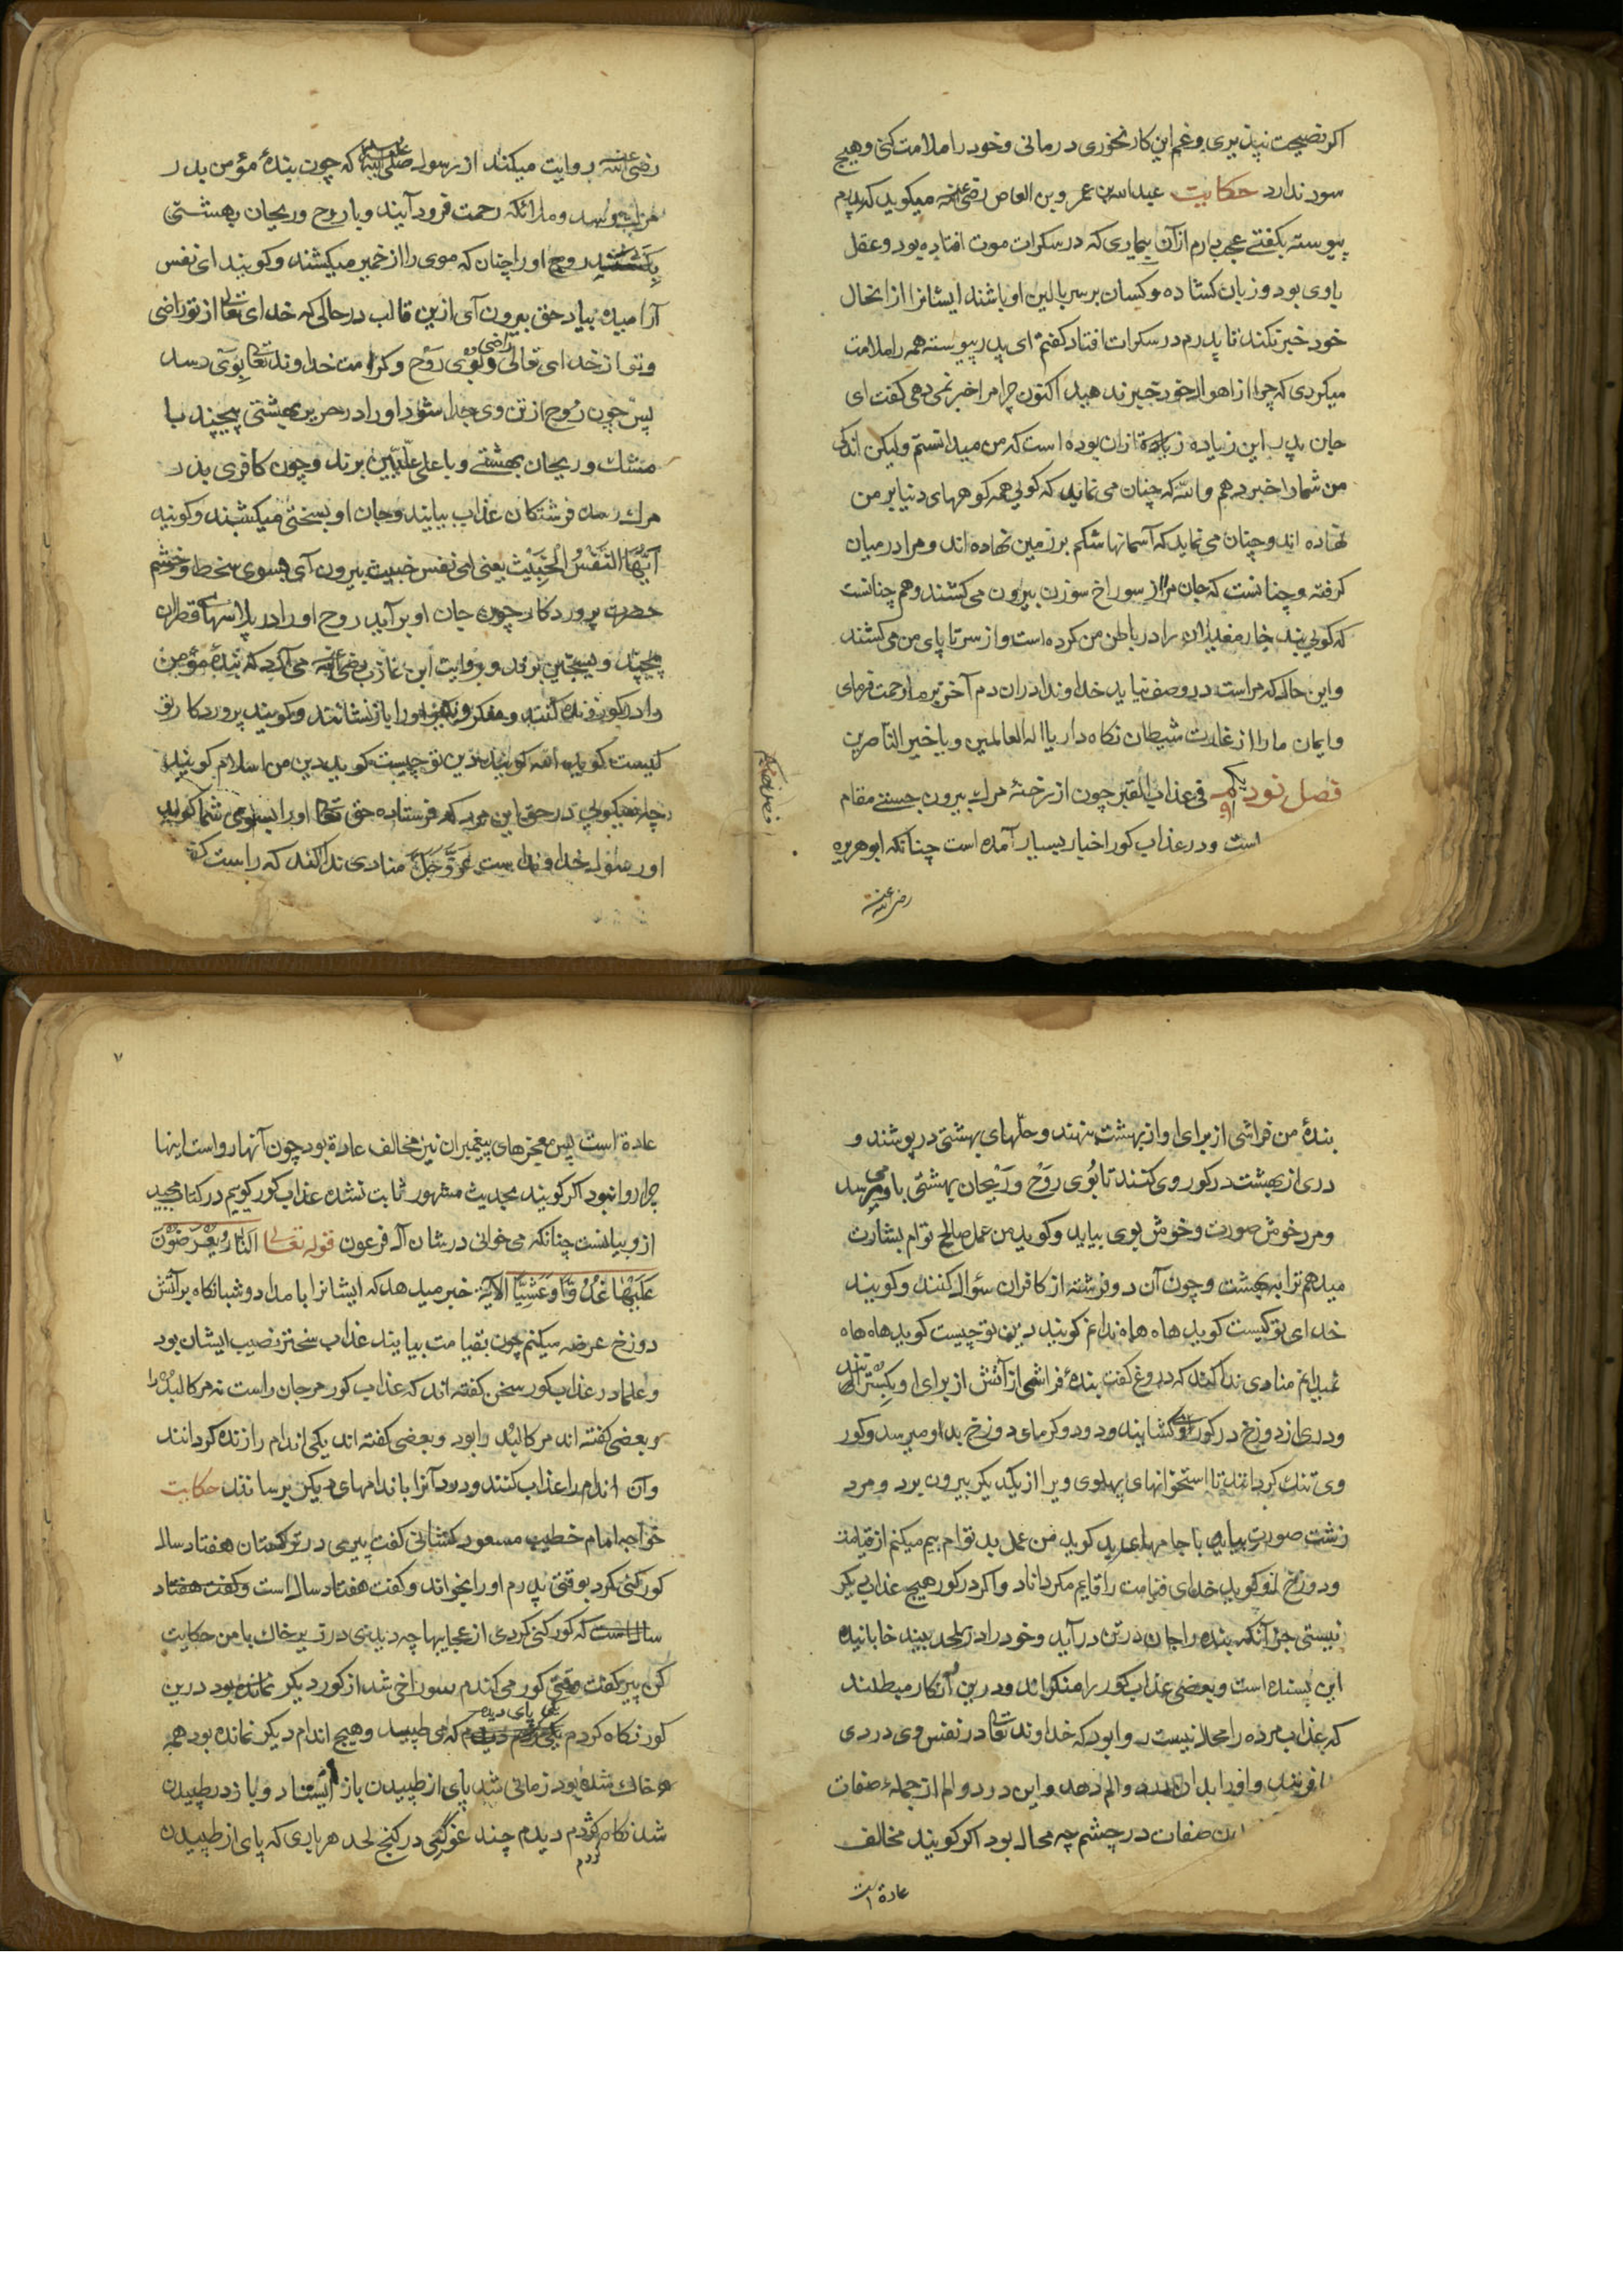 اکر نصیحت نپذیری وغم این کار نخوری درمانی وخود را ملامت کنی وهیچ
سود ندارد حکایت عبدالله بن عمرو بن العاص رضی الله عنه میکوید که پدرم
پیوسته بکفتی عجب دارم از آن بیماری که در سکرات موت افتاده بود وعقل
باوی بود وزبان کشاده وکسان بر سر بالین او باشند ایشانرا از انحال
خود خبر نکند تا پدرم در سکرات افتاد کفتم ای پدر پیوسته همه را ملامت
میکردی که چرا از اهوال خود خبر ندهید اکنون چرا مرا خبر نمی دهی کفت ای
جان پدر این زیاده زیادة ازان بوده است که من میدانستم ولیکن اندکی
من شما را خبر دهم والله که چنان می نماید که کویی همه کوههای دنیا بر من
نهاده اند وچنان می نماید که آسمانها شکم بر زمین نهاده اند ومرا در میان
کرفته وچنانست که جان مرا از سوراخ سوزن بیرون می کشند وهم چنانست
که کویی بند خار مغیلان را در باطن من کرده است واز سر تا پای من می کشند
واین حالکه مراست در وصف نیاید خداوندا دران دم آخر بر ما رحمت فرمای
وایمان ما را از غارت شیطان نکاه دار یا اله العالمین ویا خیر الناصرین
فصل نود یکم ۹۱ فی عذاب القبر چون از رخنهٔ مرک بیرون جستی مقام
است ودر عذاب کور اخبار بسیار آمده است چنانکه ابو هریره
رضی الله عنه
رضی الله عنه روایت میکند از رسول صلی الله علیه وسلم که چون بندهٔ مؤمن بدر
مرک رسد وملائکه رحمت فرود آیند وبا روح وریحان بهشتی
بکشند روح اورا چنان که موی را از خمیر میکشند وکویند ای نفس
آرامیده بیاد حق بیرون آی ازین قالب در حالی که خدای تعالی از تو راضی
وتو از خدای تعالی راضی وبوی روح وکرامت خداوند تعالی بوی رسد
پس چون روح از تن وی جدا شود اورا در حریر بهشتی پیچند با
مشک وریحان بهشتی وبا علی علیین برند وچون کافری بدر
مرک رسد فرشتکان عذاب بیایند وجان او بسختی میکشند وکویند
ایتها النفس الخبیث یعنی ای نفس خبیث بیرون آی بسوی سخط وخشم
حضرت پروردکار چون جان او بر آید روح اورا در پلاسهای قطران
پیچند وبسجین برند وبروایت ابن عاذب رضی الله عنه می آرد که بندهٔ مؤمن
را در کور زنده کنند ومنکر ونکیر اورا باز نشانند وکویند پروردکار تو
کیست کوید الله کویند دین تو چیست کوید دین من اسلام کویند
چه میکویی در حق این مرد که فرستاده حق تعالی اورا بسوی شما کوید
او رسول خداوند است عز وجل منادی ندا کند که راست کفت
بندهٔ من فراشی از برای او از بهشت بنهند وحلّهای بهشتی در پوشند و
دری از بهشت در کور وی کنند تا بُوی روَحْ ورَیْحان بهشتی باو می رسد
ومرد خوش صورت وخوش بوی بیاید وکوید من عمل صالح توام بشارت
میدهم ترا ببهشت وچون آن دو فرشته از کافران سئوال کنند وکویند
خدای تو کیست کوید هاه هاه ندانم کویند دین تو چیست کوید هاه هاه
نمیدانم منادی ندا کند که دروغ کفت بندهٔ فراشی از آتش از برای او بکسترانند
ودری از دوزخ در کور او کشایند ودود وکرمای دوزخ بد او میرسد وکور
وی تنک کردانند تا استخوانهای پهلوی ویرا از یکدیکر بیرون برد ومرد
زشت صورت بیاید با جامهای بد کوید من عمل بد توام بیم میکنم از قیامت
ودوزخ او کوید خدای قیامت را قایم مکرداناد واکر در کور هیچ عذابی دیکر
نیستی جز آنکه بنده را جان در تن در آید وخود را در لحد بیند خابانیده
این بسنده است وبعضی عذاب کور را منکراند ودرین انکار مبطلند
که عذاب مرده را محال نیست روا بود که خداوند تعالی در نفس وی دردی
افریند واورا بدان درد والم دهد واین درد والم از جملهٔ صفات
این صفات در چشم چه محال بود اکر کویند مخالف
عادة است
۷
عادة است پس معجزهای پیغمبران نیز مخالف عادة بود چون آنها رواست اینها
چرا روا نبود اکر کویند بحدیث مشهور ثابت نشده عذاب کور کوییم در کتاب مجید
ازو بیانست چنانکه می خوانی در شان آل فرعون قوله تعالی النَّارُ یُعْرَضُونَ
عَلَیْهَا غُدُوًّا وَعَشِیًّا الآیة خبر میدهد که ایشانرا بامداد وشبانکاه بر آتش
دوزخ عرضه میکنم چون بقیامت بیایند عذاب سختتر نصیب ایشان بود
وعلما در عذاب کور سخن کفته اند که عذاب کور مر جان راست نه مر کالبد را
وبعضی کفته اند مر کالبد را بود وبعضی کفته اند یکی اندام را زنده کردانند
وآن اندام را عذاب کنند ودرد آنرا باندامهای دیکر برسانند حکایت
خواجه امام خطیب مسعود کشانی کفت پیری در ترکستان هفتاد سال
کور کنی کرد بوقتی پدرم اورا بخواند وکفت هفتاد سال است وکفت هفتاد
سال است که کور کنی کردی از عجایبها چه دیدی در زیر خاک با من حکایت
کن پیر کفت وقتی کور می کندم سوراخی شد از کور دیکر نمانده بود درین
کور نکاه کردم یکی پای دیدم که می طپید وهیچ اندام دیکر نمانده بود همه
خاک شده بود زمانی شد پای از طپیدن باز ایستاد وباز در طپیدن
شد نکاه کردم کژدم دیدم چند غوکی در کنج لحد هر باری که پای از طپیدن